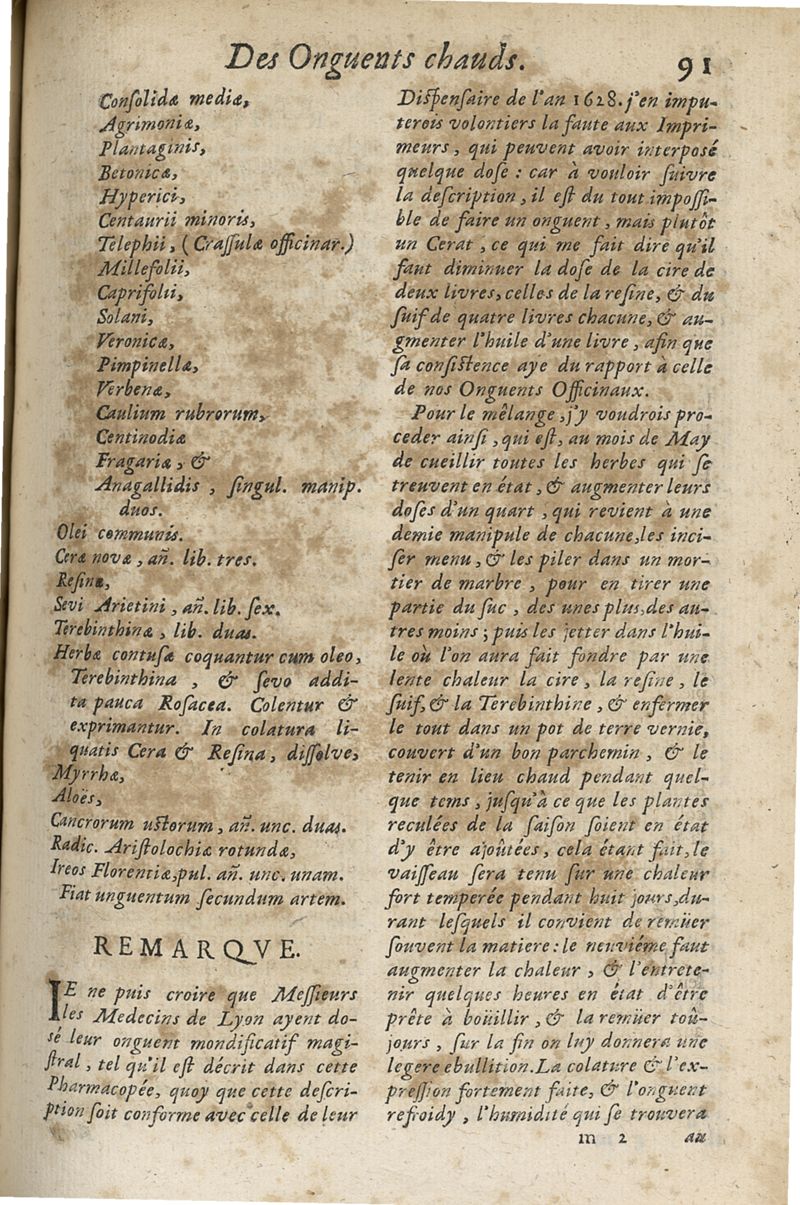 Des Onguents chauds. 91
Conſolidæ mediæ,
Agrimoniæ,
Plantaginis,
Betonicæ,
Hyperici,
Centaurii minoris,
Telephii, (Craſſulæ officinar.)
Millefolii,
Caprifolii,
Solani,
Veronicæ,
Pimpinellæ,
Verbenæ,
Caulium rubrorum,
Centinodiæ
Fragariæ, &
Anagallidis, ſingul. manip.
duos.
Olei communis.
Ceræ novæ, añ. lib. tres.
Reſinæ,
Sevi Arietini, añ. lib. ſex.
Terebinthinæ, lib. duas.
Herbæ contuſæ coquantur cum oleo,
Terebinthina, & ſevo addi-
ta pauca Roſacea. Colentur &
exprimantur. In colatura li-
quatis Cera & Reſina, diſſolve,
Myrrhæ,
Aloës,
Cancrorum uſtorum, añ. unc. duas.
Radic. Ariſtolochiæ rotundæ,
Ireos Florentiæ, pul. añ. unc. unam.
Fiat unguentum ſecundum artem.
REMARQVE.
IE ne puis croire que Meſſieurs
les Medecins de Lyon ayent do-
sé leur onguent mondificatif magi-
ſtral, tel qu'il eſt décrit dans cette
Pharmacopée, quoy que cette deſcri-
ption ſoit conforme avec celle de leur
Diſpenſaire de l'an 1628. j'en impu-
terois volontiers la faute aux Impri-
meurs, qui peuvent avoir interposé
quelque doſe : car à vouloir ſuivre
la deſcription, il eſt du tout impoſſi-
ble de faire un onguent, mais plutôt
un Cerat, ce qui me fait dire qu'il
faut diminuer la doſe de la cire de
deux livres, celles de la reſine, & du
ſuif de quatre livres chacune, & au-
gmenter l'huile d'une livre, afin que
ſa conſiſtence aye du rapport à celle
de nos Onguents Officinaux.
Pour le mêlange, j'y voudrois pro-
ceder ainſi, qui eſt, au mois de May
de cueillir toutes les herbes qui ſe
treuvent en état, & augmenter leurs
doſes d'un quart, qui revient à une
demie manipule de chacune, les inci-
ſer menu, & les piler dans un mor-
tier de marbre, pour en tirer une
partie du ſuc, des unes plus, des au-
tres moins ; puis les jetter dans l'hui-
le où l'on aura fait fondre par une
lente chaleur la cire, la reſine, le
ſuif, & la Terebinthine, & enfermer
le tout dans un pot de terre vernie,
couvert d'un bon parchemin, & le
tenir en lieu chaud pendant quel-
que tems, juſqu'à ce que les plantes
reculées de la ſaiſon ſoient en état
d'y être ajoûtées, cela étant fait, le
vaiſſeau ſera tenu ſur une chaleur
fort temperée pendant huit jours, du-
rant leſquels il convient de remüer
ſouvent la matiere : le neuviéme faut
augmenter la chaleur, & l'entrete-
nir quelques heures en état d'être
prête à boüillir, & la remüer toû-
jours, ſur la fin on luy donnera une
legere ebullition. La colature & l'ex-
preſſion fortement faite, & l'onguent
refroidy, l'humidité qui ſe trouvera
m 2 au